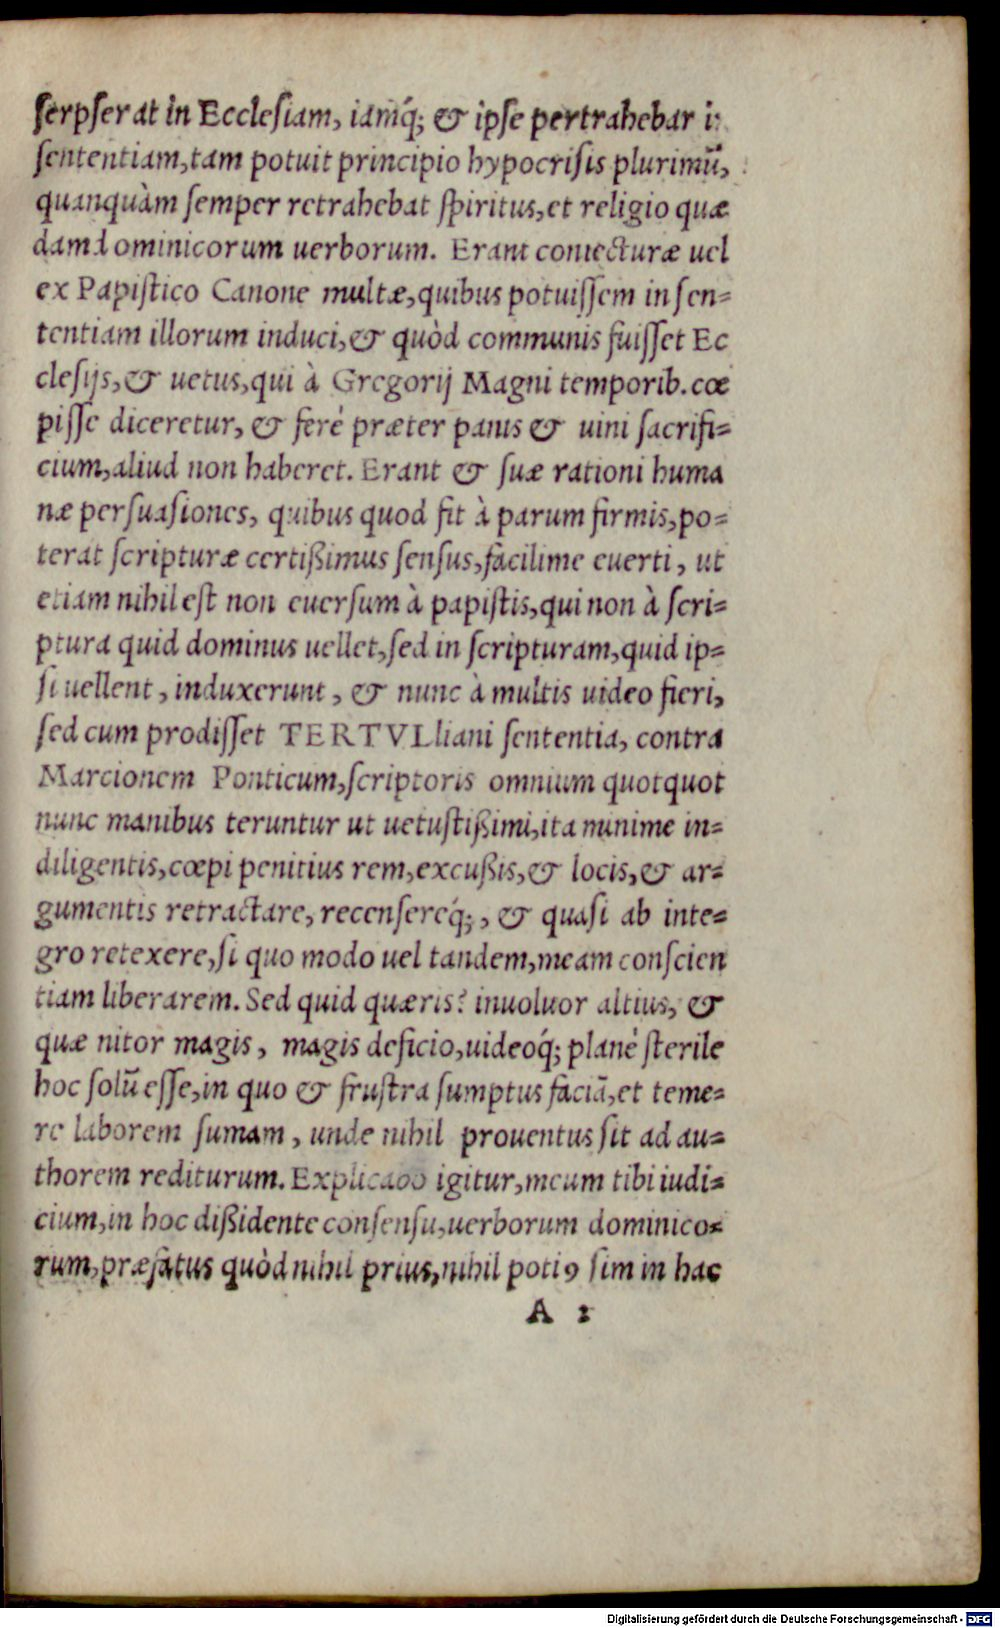 serpserat in Ecclesiam, iamq́; & ipse pertrahebar
sententiam, tam potuit principio hypocrisis plurimũ,
quanquàm semper retrahebat spiritus, et religio quæ
dam dominicorum uerborum. Erant coniecturæ uel
ex Papistico Canone multæ, quibus potuissem in sen=
tentiam illorum induci, & quòd communis fuisset Ec
clesijs, & uetus, qui à Gregorij Magni temporib. cœ
pisse diceretur, & ferè præter panis & uini sacrifi=
cium, aliud non haberet. Erant & suæ rationi huma
næ persuasiones, quibus quod fit à parum firmis, po=
terat scripturæ certißimus sensus, facilime euerti, ut
etiam nihil est non euersum à papistis, qui non à scri=
ptura quid dominus uellet, sed in scripturam, quid ip=
si uellent, induxerunt, & nunc à multis uideo fieri,
sed cum prodisset TERTVLliani sententia, contra
Marcionem Ponticum, scriptoris omnium quotquot
nunc manibus teruntur ut uetustißimi, ita minime in=
diligentis, cœpi penitius rem, excußis, & locis, & ar=
gumentis retractare, recensereq́;, & quasi ab inte=
gro retexere, si quo modo uel tandem, meam conscien
tiam liberarem. Sed quid quæris? inuoluor altius, &
quæ nitor magis, magis deficio, uideoq́; planè sterile
hoc solũ esse, in quo & frustra sumptus faciã, et teme=
re laborem sumam, unde nihil prouentus sit ad au=
thorem rediturum. Explicabo igitur, meum tibi iudi=
cium, in hoc dißidente consensu, uerborum dominico=
rum, præfatus quòd nihil prius, nihil potiꝰ sim in hac
A 2
Digitalisierung gefördert durch die Deutsche Forschungsgemeinschaft - DFG